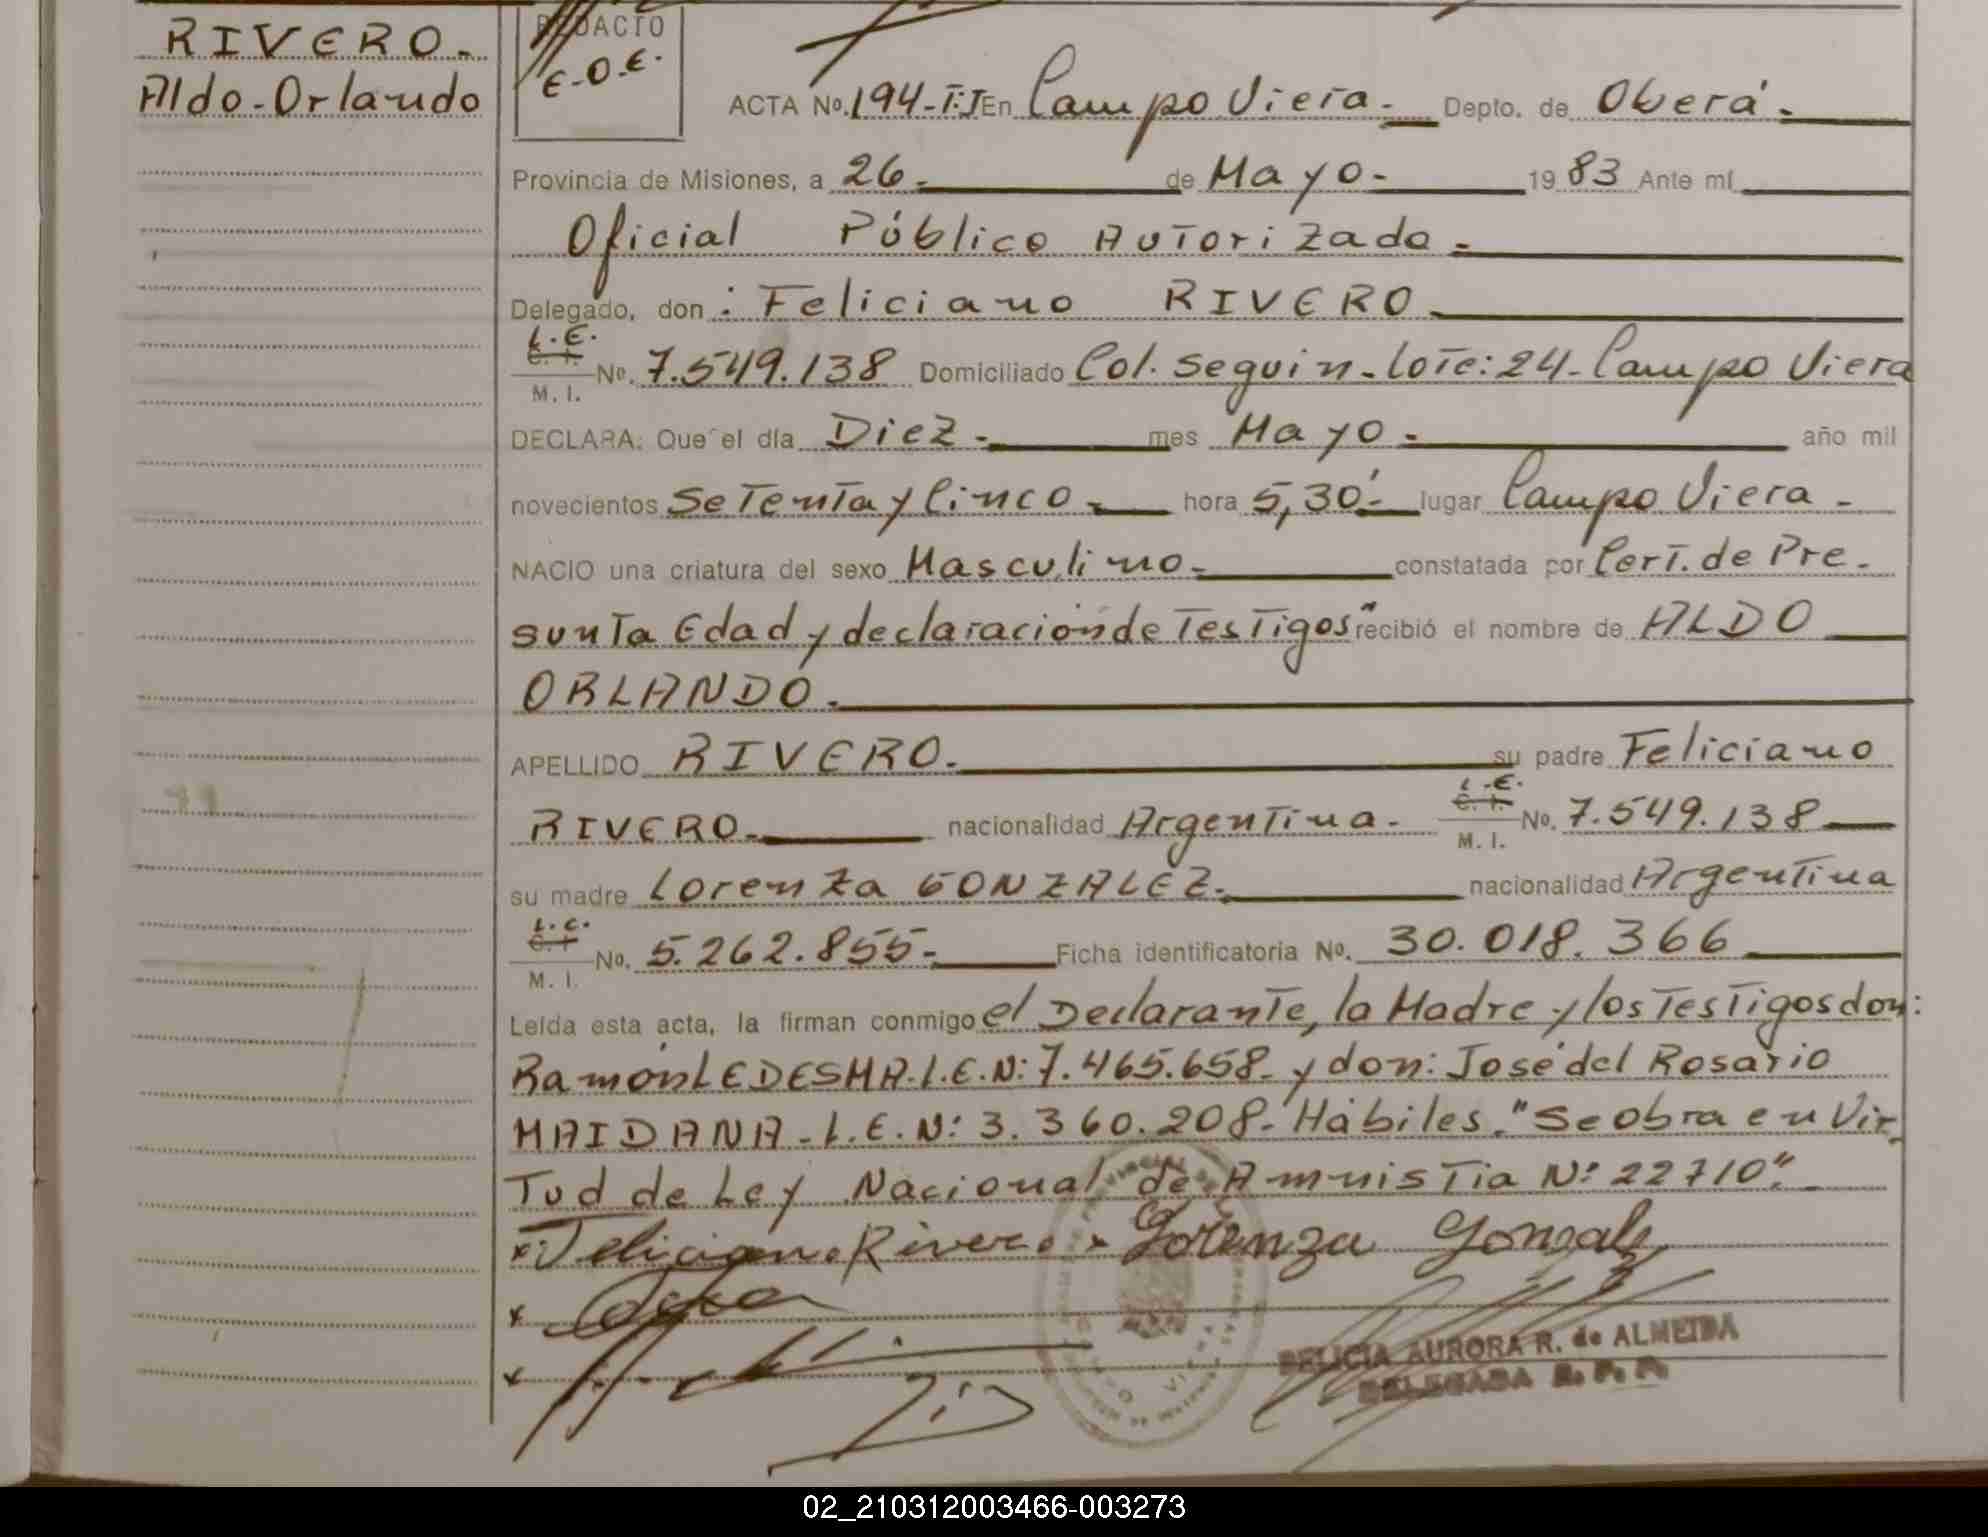 RIVERO.
Aldo-Orlando
REDACTO
E-O-E.
ACTA No. 194-T:I En Campo Viera.- Depto. de Oberá.-
Provincia de Misiones, a 26.- de Mayo.- 19 83 Ante mí
Oficial Público Autorizado.-
Delegado, don : Feliciano RIVERO.
L.E.
C. I.
M. I.
No. 7.549.138 Domiciliado Col. Seguin.-lote:24-Campo Viera
DECLARA: Que el día Diez.- mes Mayo.- año mil
novecientos Setenta y Cinco.- hora 5,30'.- lugar Campo Viera.-
NACIO una criatura del sexo Masculino.- constatada por Cert. de Pre-
sunta Edad y declaración de Testigos" recibió el nombre de ALDO
ORLANDO.
APELLIDO RIVERO. su padre Feliciano
RIVERO.- nacionalidad Argentina.- L.E. C. I. M. I. No. 7.549.138
su madre Lorenza GONZALEZ.- nacionalidad Argentina
L.C.
C. I.
M. I.
No. 5.262.855.- Ficha identificatoria No. 30.018.366
Leída esta acta, la firman conmigo el Declarante, la Madre y los Testigos don:
Ramón LEDESMA.L.E.N:7.465.658.-y don: José del Rosario
MAIDANA-L.E.N:3.360.208.-Hábiles."Se obra en Vir-
Tud de Ley Nacional de Amnistia N:22710".-
x Feliciano Rivero x Lorenza Gonzalez
x
x
FELICIA AURORA R. de ALMEIDA
DELEGADA R. P. P.
02_210312003466-003273